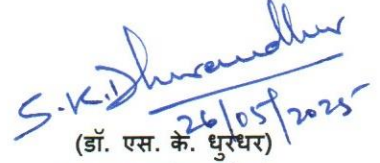 S.K.Dhurandhar
26/05/2025
(डॉ. एस. के. धुरंधर)